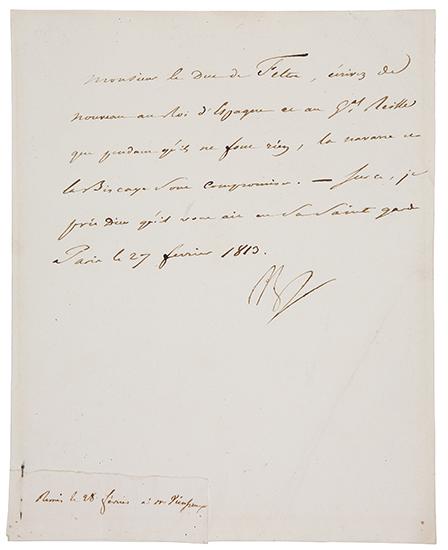 Monsieur le Duc de Feltre, écrivez de
nouveau au Roi d'Espagne et au Gal Reille
que pendant qu'ils ne font rien, la navarre et
la Biscaye sont compromises. — Sur ce, je
prie Dieu qu'il vous ait en Sa Sainte garde
a Paris le 27 fevrier 1813.
Remis le 28 février à Mr